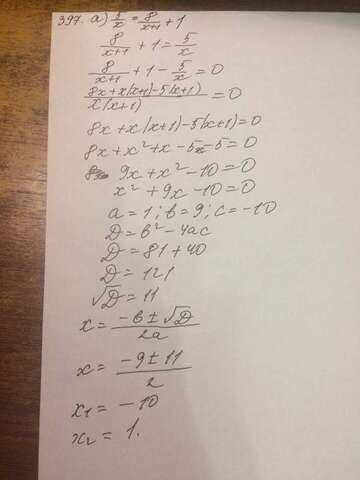 397. а) 5/x = 8/(x+1) + 1
8/(x+1) + 1 = 5/x
8/(x+1) + 1 - 5/x = 0
(8x+x(x+1)-5(x+1))/(x(x+1)) = 0
8x+x(x+1)-5(x+1)=0
8x+x²+x-5x-5=0
9x+x²-10=0
x²+9x-10=0
a=1; b=9; c=-10
D=b²-4ac
D=81+40
D=121
√D=11
x = (-b±√D)/(2a)
x = (-9±11)/2
x₁ = -10
x₂ = 1.